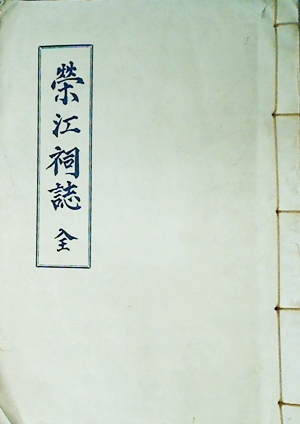 榮江祠誌 全